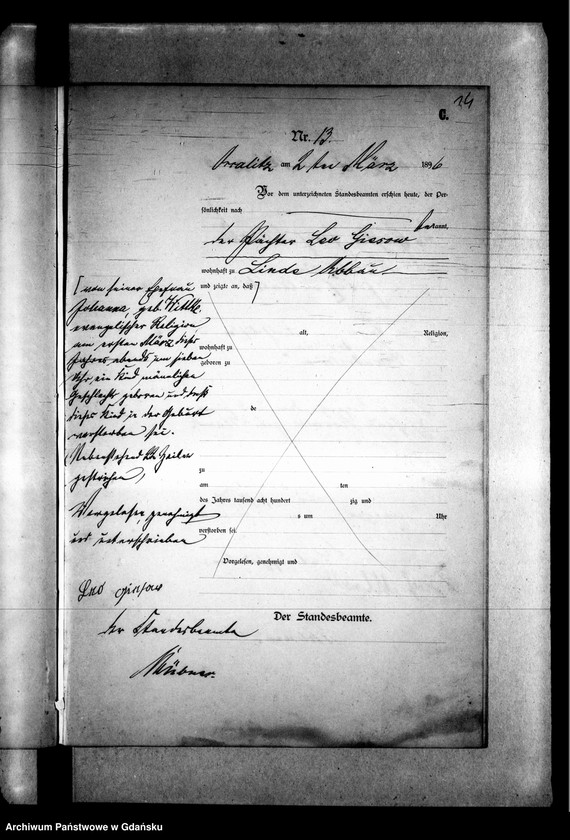 24
C.
Nr. 13.
am 2ten März 1896
Vor dem unterzeichneten Standesbeamten erschien heute, der Per-
sönlichkeit nach
bekannt,
der Pächter Leo Giesow
wohnhaft zu Linde Abbau
und zeigte an, daß
von seiner Ehefrau
Johanna, geb. Wittke,
evangelischer Religion
am ersten März dieses
Jahres abends um sieben
Uhr ein Kind männlichen
Geschlechts geboren und daß
dieses Kind in der Geburt
verstorben sei.
Nebenstehend Zeilen
gestrichen,
Vorgelesen, genehmigt
und unterschrieben
Leo Giesow
der Standesbeamte
alt, Religion,
wohnhaft zu
geboren zu
de
zu
am ten
des Jahres tausend acht hundert zig und
s um Uhr
verstorben sei.
Vorgelesen, genehmigt und
Der Standesbeamte.
Archiwum Państwowe w Gdańsku